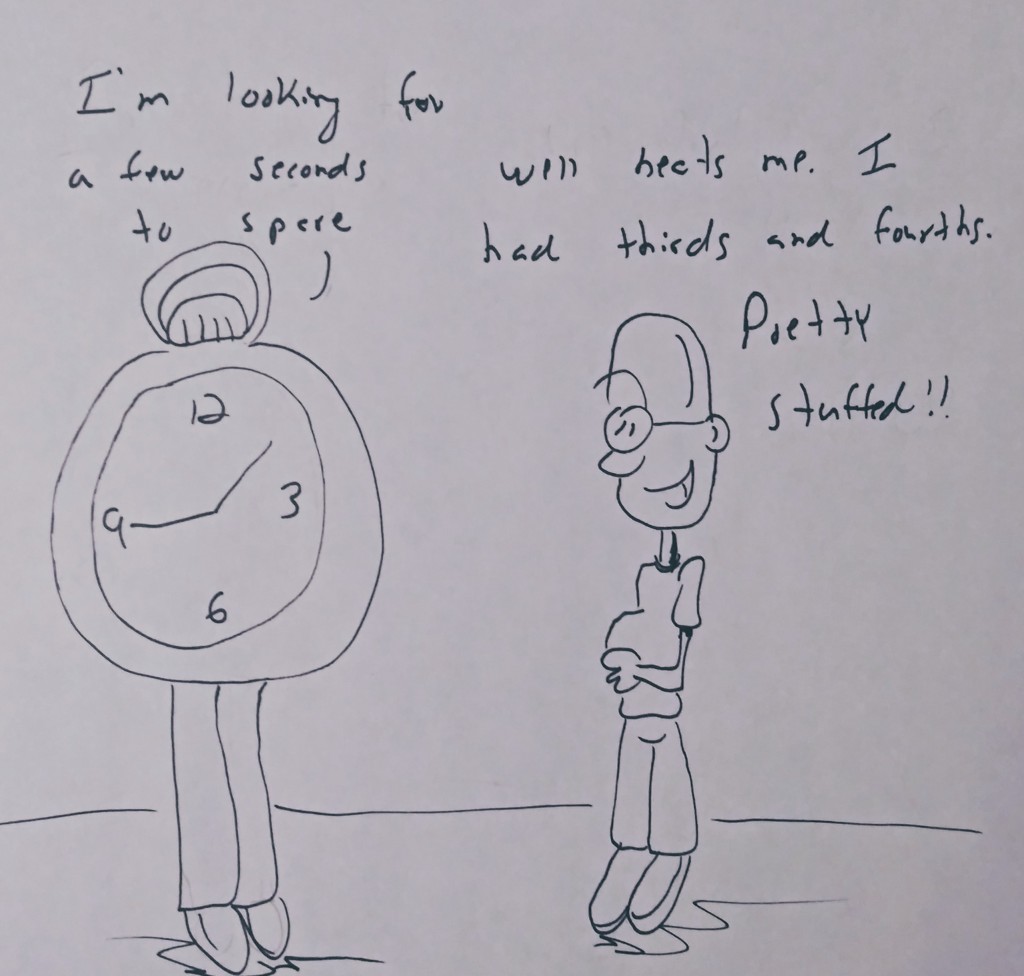 I'm looking for
a few seconds
to spare
well heats me. I
had thirds and fourths.
Pretty
stuffed!!
12
9
3
6